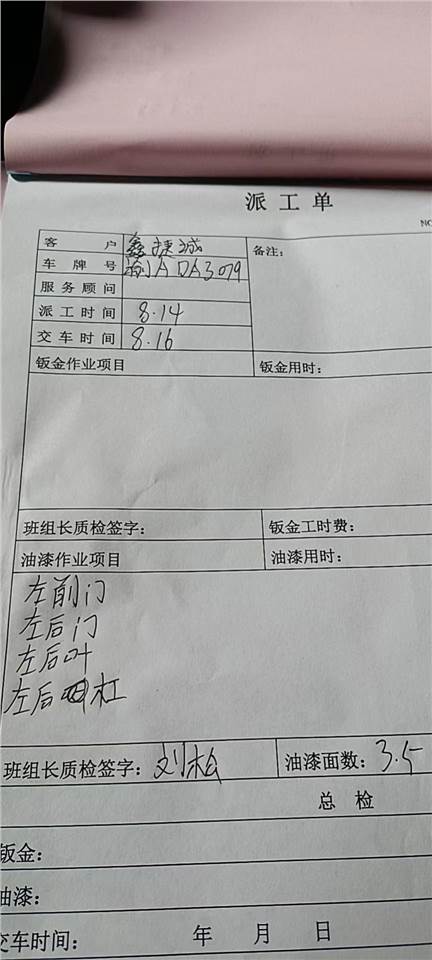 派工单
NO
客户 鑫捷城 备注：
车牌号 渝ADA3079
服务顾问
派工时间 8.14
交车时间 8.16
钣金作业项目 钣金用时：
班组长质检签字： 钣金工时费：
油漆作业项目 油漆用时：
左前门
左后门
左后叶
左后杠
班组长质检签字：刘松 油漆面数：3.5
总检
钣金：
油漆：
交车时间： 年 月 日